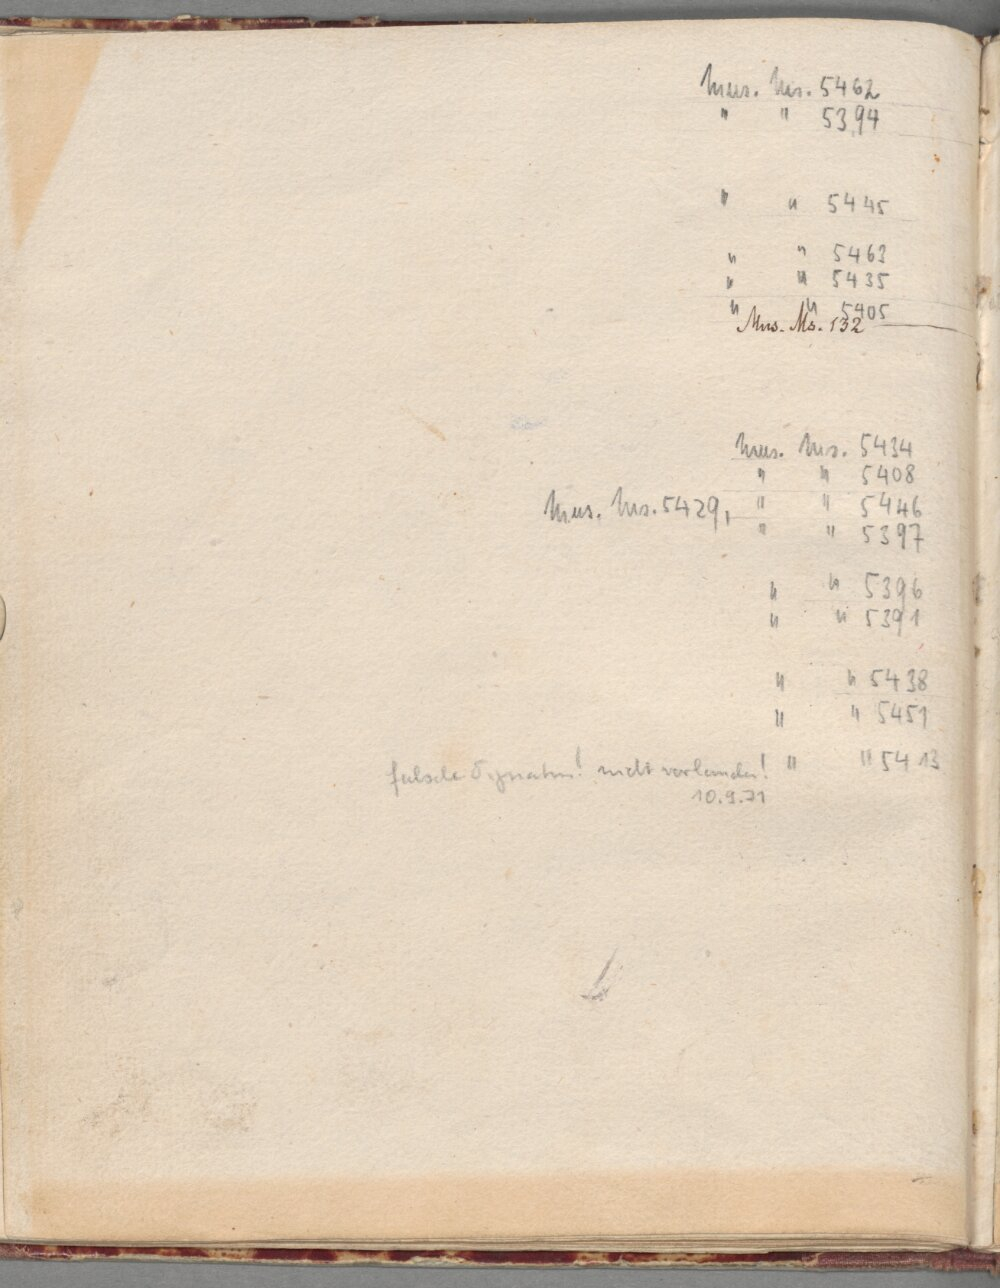 Mus. Ms. 5462
" " 5394
" " 5445
" " 5463
" " 5435
" " 5405
Mus. Ms. 132
Mus. Ms. 5434
" " 5408
Mus. Ms. 5429, " " 5446
" " 5397
" " 5396
" " 5391
" " 5438
" " 5451
falsche Signatur! nicht vorhanden! " " 5413
10.9.71